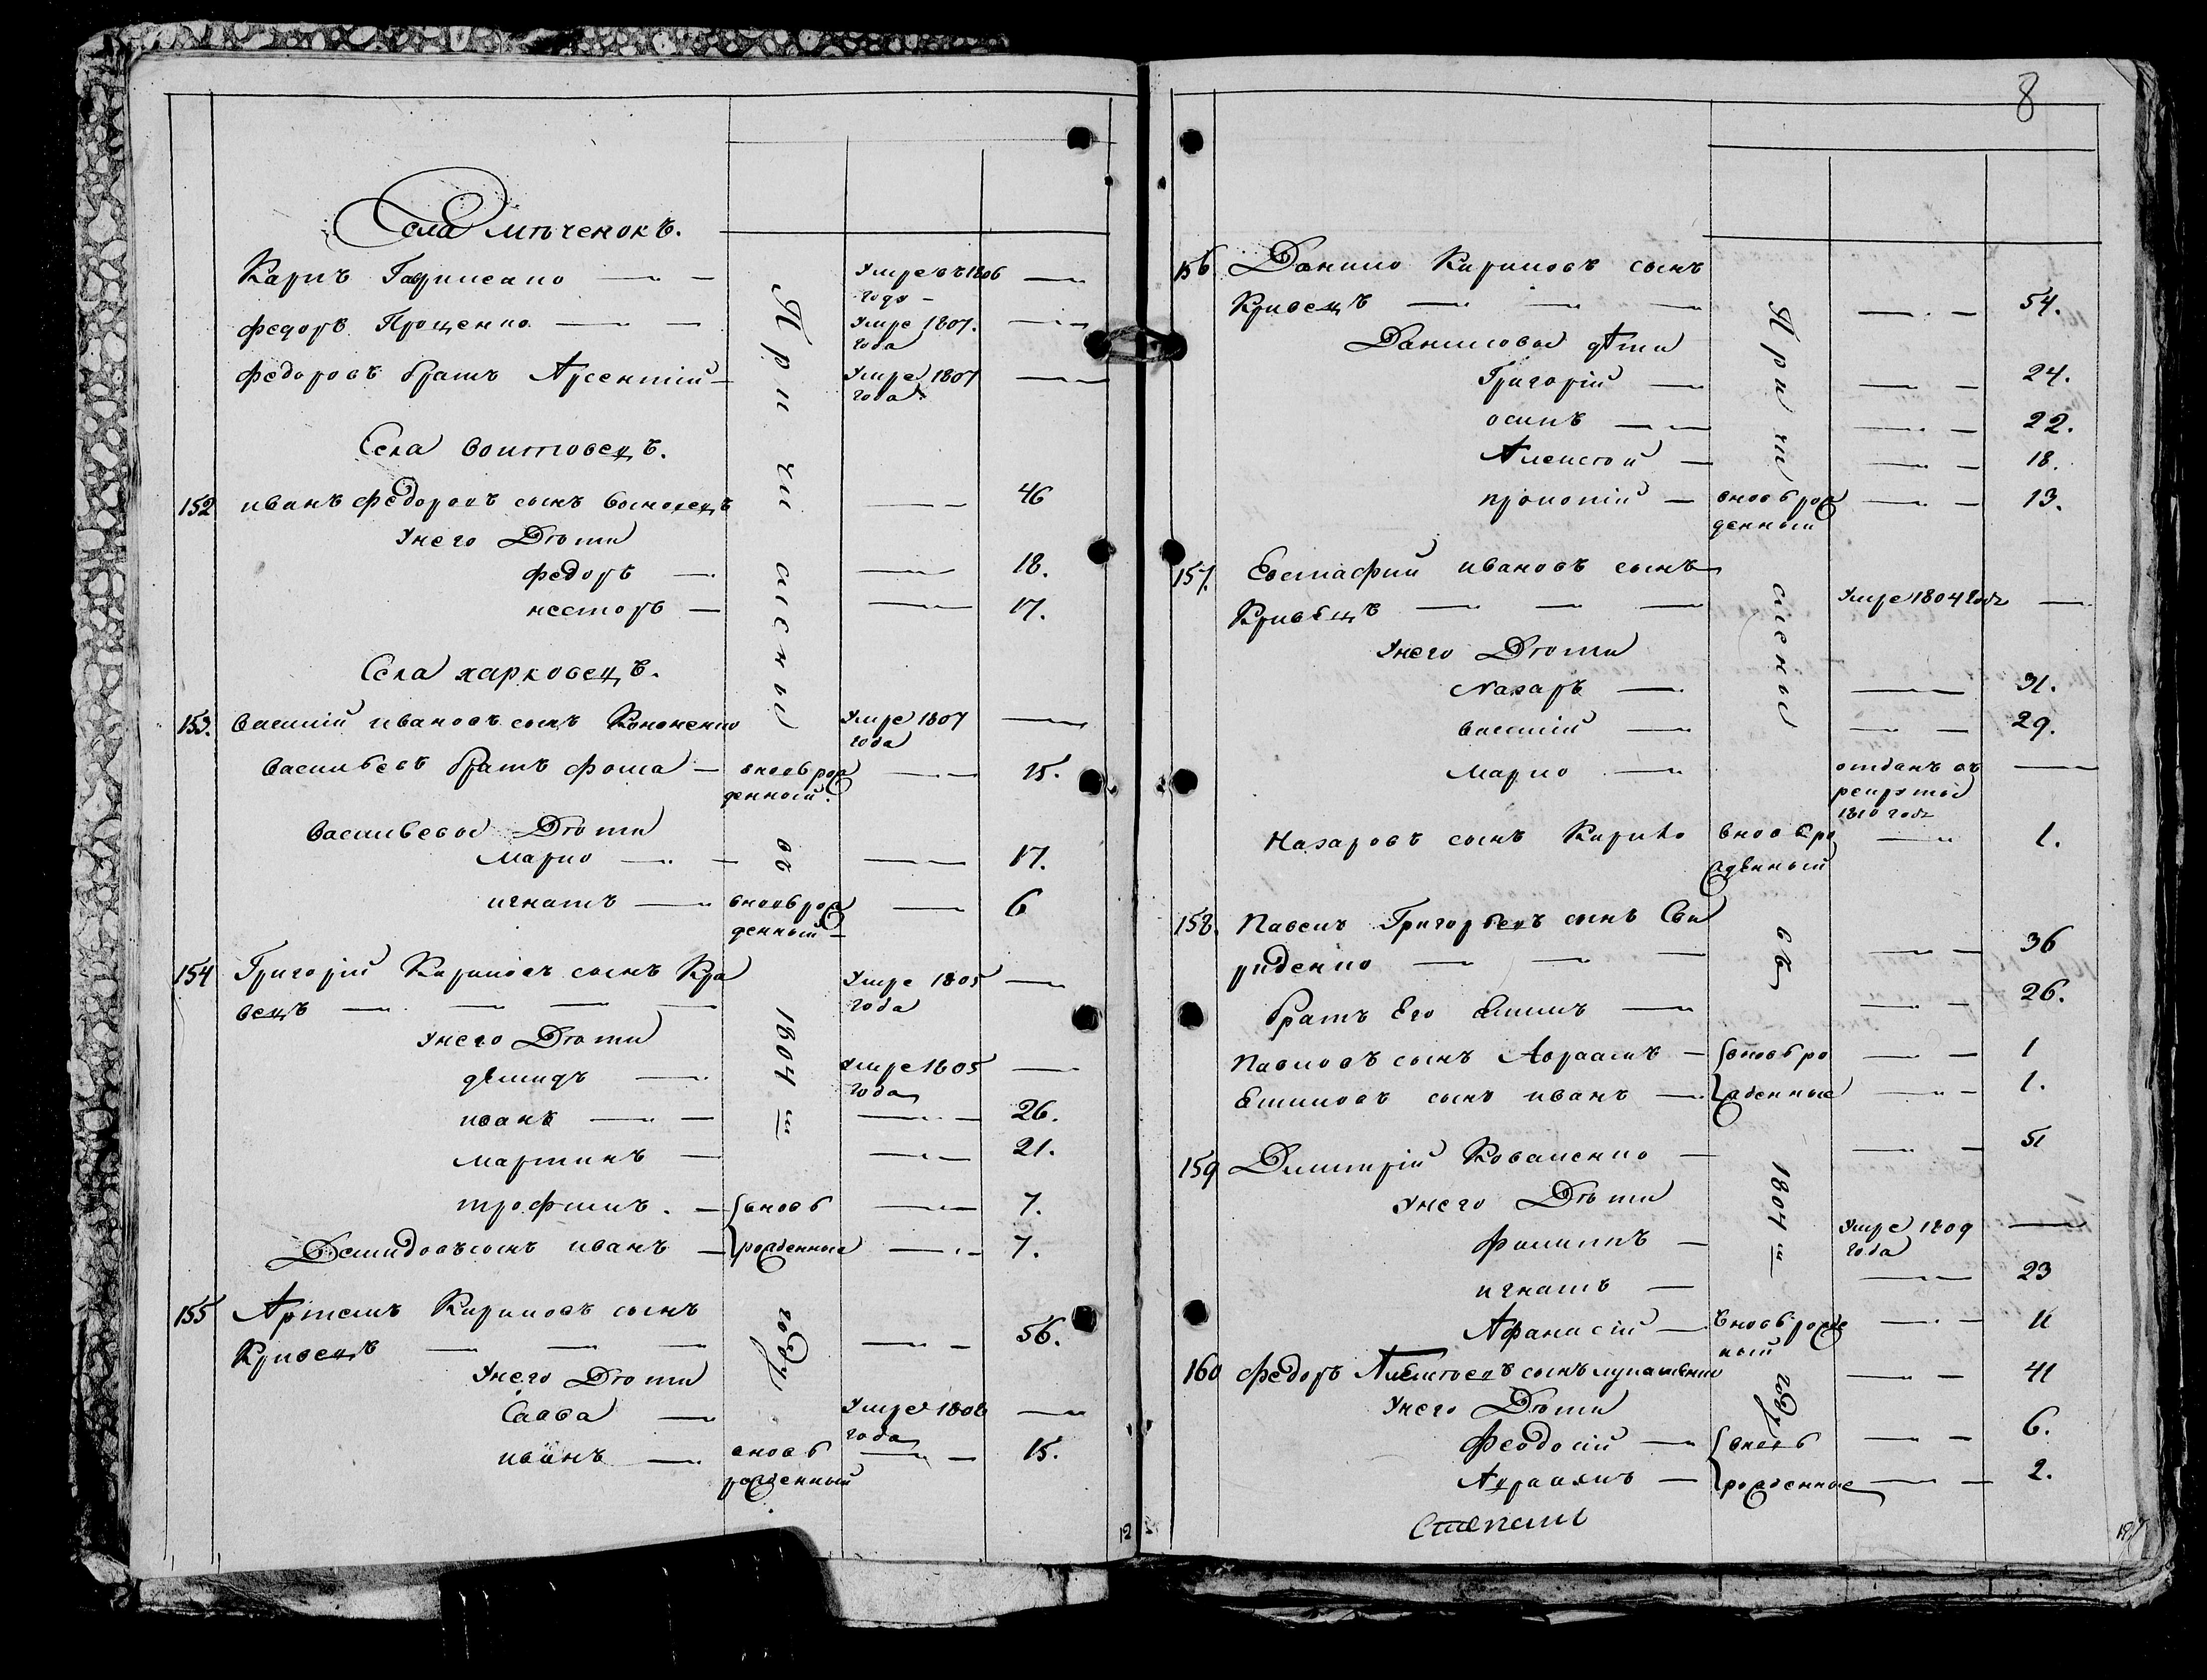 Села мѣченокъ.
Карпъ Гаврилско — — умре въ 1806 году — —
федоръ Проценко — — умре 1807. года — —
федоровъ братъ Арсентій — умре 1807 года — —
При численны въ 1804 м году
Села воитовецъ.
152 иванъ федоровъ сынъ — 46
У него Дѣти
федоръ — — 18.
несторъ — — 17.
Села харковецъ.
153. Василій ивановъ сынъ Кононенко умре 1807 года —
Васильевъ братъ фома — вновь рожденный. — — 15.
Васильевы Дѣти
Марко — — — 17.
игнатъ — вновь рожденный — — 6
154 Григорій Кириловъ сынъ Кри
вецъ — — — — умре 1805 года —
У него Дѣти
демидъ — умре 1805 года —
иванъ — — — — 26.
мартинъ — — — 21.
трофимъ. — вновь — — 7.
Демидовъ сынъ иванъ — рожденные — — 7.
155 Артемъ Кириловъ сынъ
Кривецъ — — — — — 56.
У него Дѣти
Савва — умре 1806 года —
иванъ — вновь рожденный — — 15.
12
8
156 Данило Кириловъ сынъ
Кривецъ — — — — — 54.
Даниловы дѣти
Григорій — — — 24.
осипъ — — — — 22.
Алексѣй — — — 18.
прокопій — вновь рожденный — — 13.
При численны въ 1804 м году
157. Евстафии ивановъ сынъ
Кривецъ — — — умре 1804 году —
У него Дѣти
Назаръ — — 31.
василій — — — 29.
Марко — отданъ въ рекруты 1810 году —
Назаровъ сынъ Кирило вновь рожденный — 1.
158. Павелъ Григорьевъ сынъ Сви
риденко — — — — — 36
братъ Его Екимъ — — — 26.
Павловъ сынъ Авраамъ — вновь ро — — 1
Екимовъ сынъ иванъ — жденные — — 1.
159 Димитрій Коваленко — — — 51
У него Дѣти
Филипъ — умре 1809 года —
игнатъ — — 23
Афанасій — вновь рожденный — — 11
160 федоръ Алексѣевъ сынъ — — 41
У него Дѣти
Феодосій — вновь — — 6.
Авраамъ — рожденные — — 2.
Степанъ